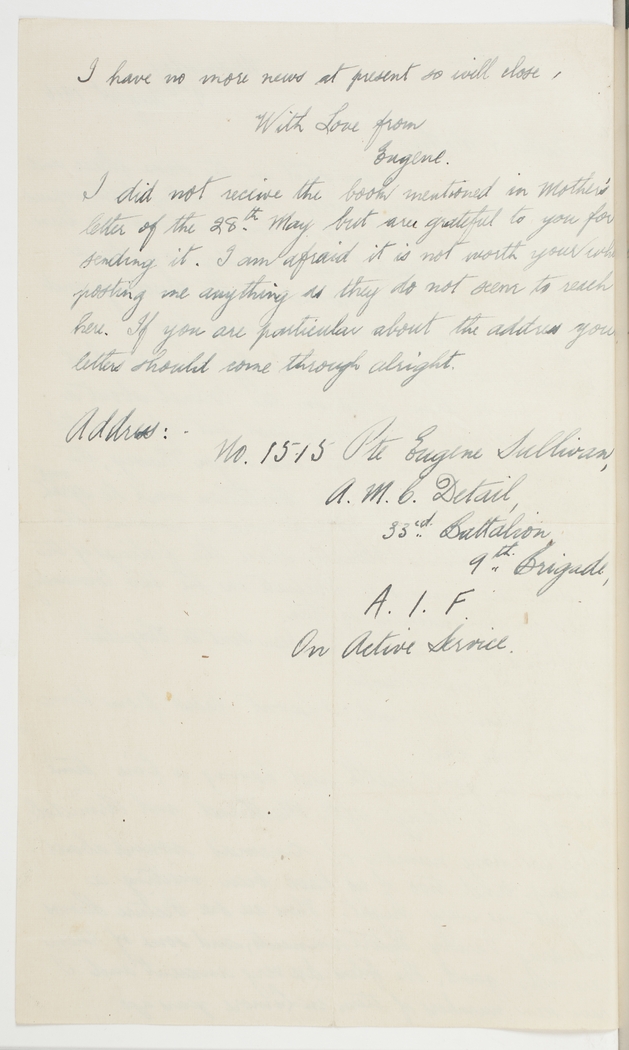 I have no more news at present so will close,
With Love from
Eugene.
I did not receive the book mentioned in Mother's
letter of the 28th May but are grateful to you for
sending it. I am afraid it is not worth your
posting me anything as they do not seem to reach
here. If you are particular about the address you
letters should come through alright.
Address: -
No. 1515 Pte Eugene Sullivan,
A. M. C. Detail,
33rd Battalion,
9th Brigade,
A. I. F.
On Active Service.